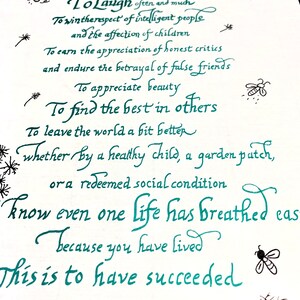 To Laugh often and much
To win the respect of intelligent people
and the affection of children
To earn the appreciation of honest critics
and endure the betrayal of false friends
To appreciate beauty
To find the best in others
To leave the world a bit better
whether by a healthy child, a garden patch,
or a redeemed social condition
know even one life has breathed eas
because you have lived
This is to have succeeded